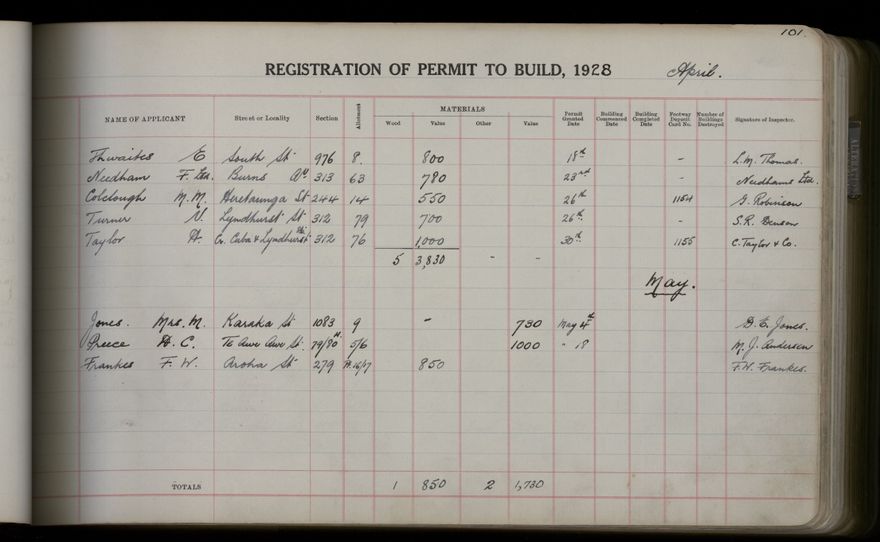 101.
REGISTRATION OF PERMIT TO BUILD, 1928 April.
NAME OF APPLICANT Street or Locality Section Allotment MATERIALS Wood Value Other Value Permit Granted Date Building Commenced Date Building Completed Date Footway Deposit Card No. Number of Buildings Destroyed Signature of Inspector.
Thwaites E South St 976 8. 800 18th - L.M. Thomas.
Needham F. Ltd. Burns Av 313 63 780 23rd - Needhams Ltd.
Colclough M.M. Heretaunga St 244 14 550 26th 1154 G. Robinson
Turner V. Lyndhurst St 312 79 700 26th - S.R. Benson
Taylor A. Cr. Cuba & Lyndhurst Sts 312 76 1,000 30th 1155 C. Taylor & Co.
5 3,830 - -
May.
Jones. Mrs. M. Karaka St 1083 9 - 730 May 4th D.E. Jones.
Preece A.C. Te Awe Awe St. 79/80 5/6 1000 " 18 M.J. Andersen
Frankes F.W. Aroha St 279 16/17 850 F.W. Frankes.
TOTALS 1 850 2 1,730
ALTERATIONS